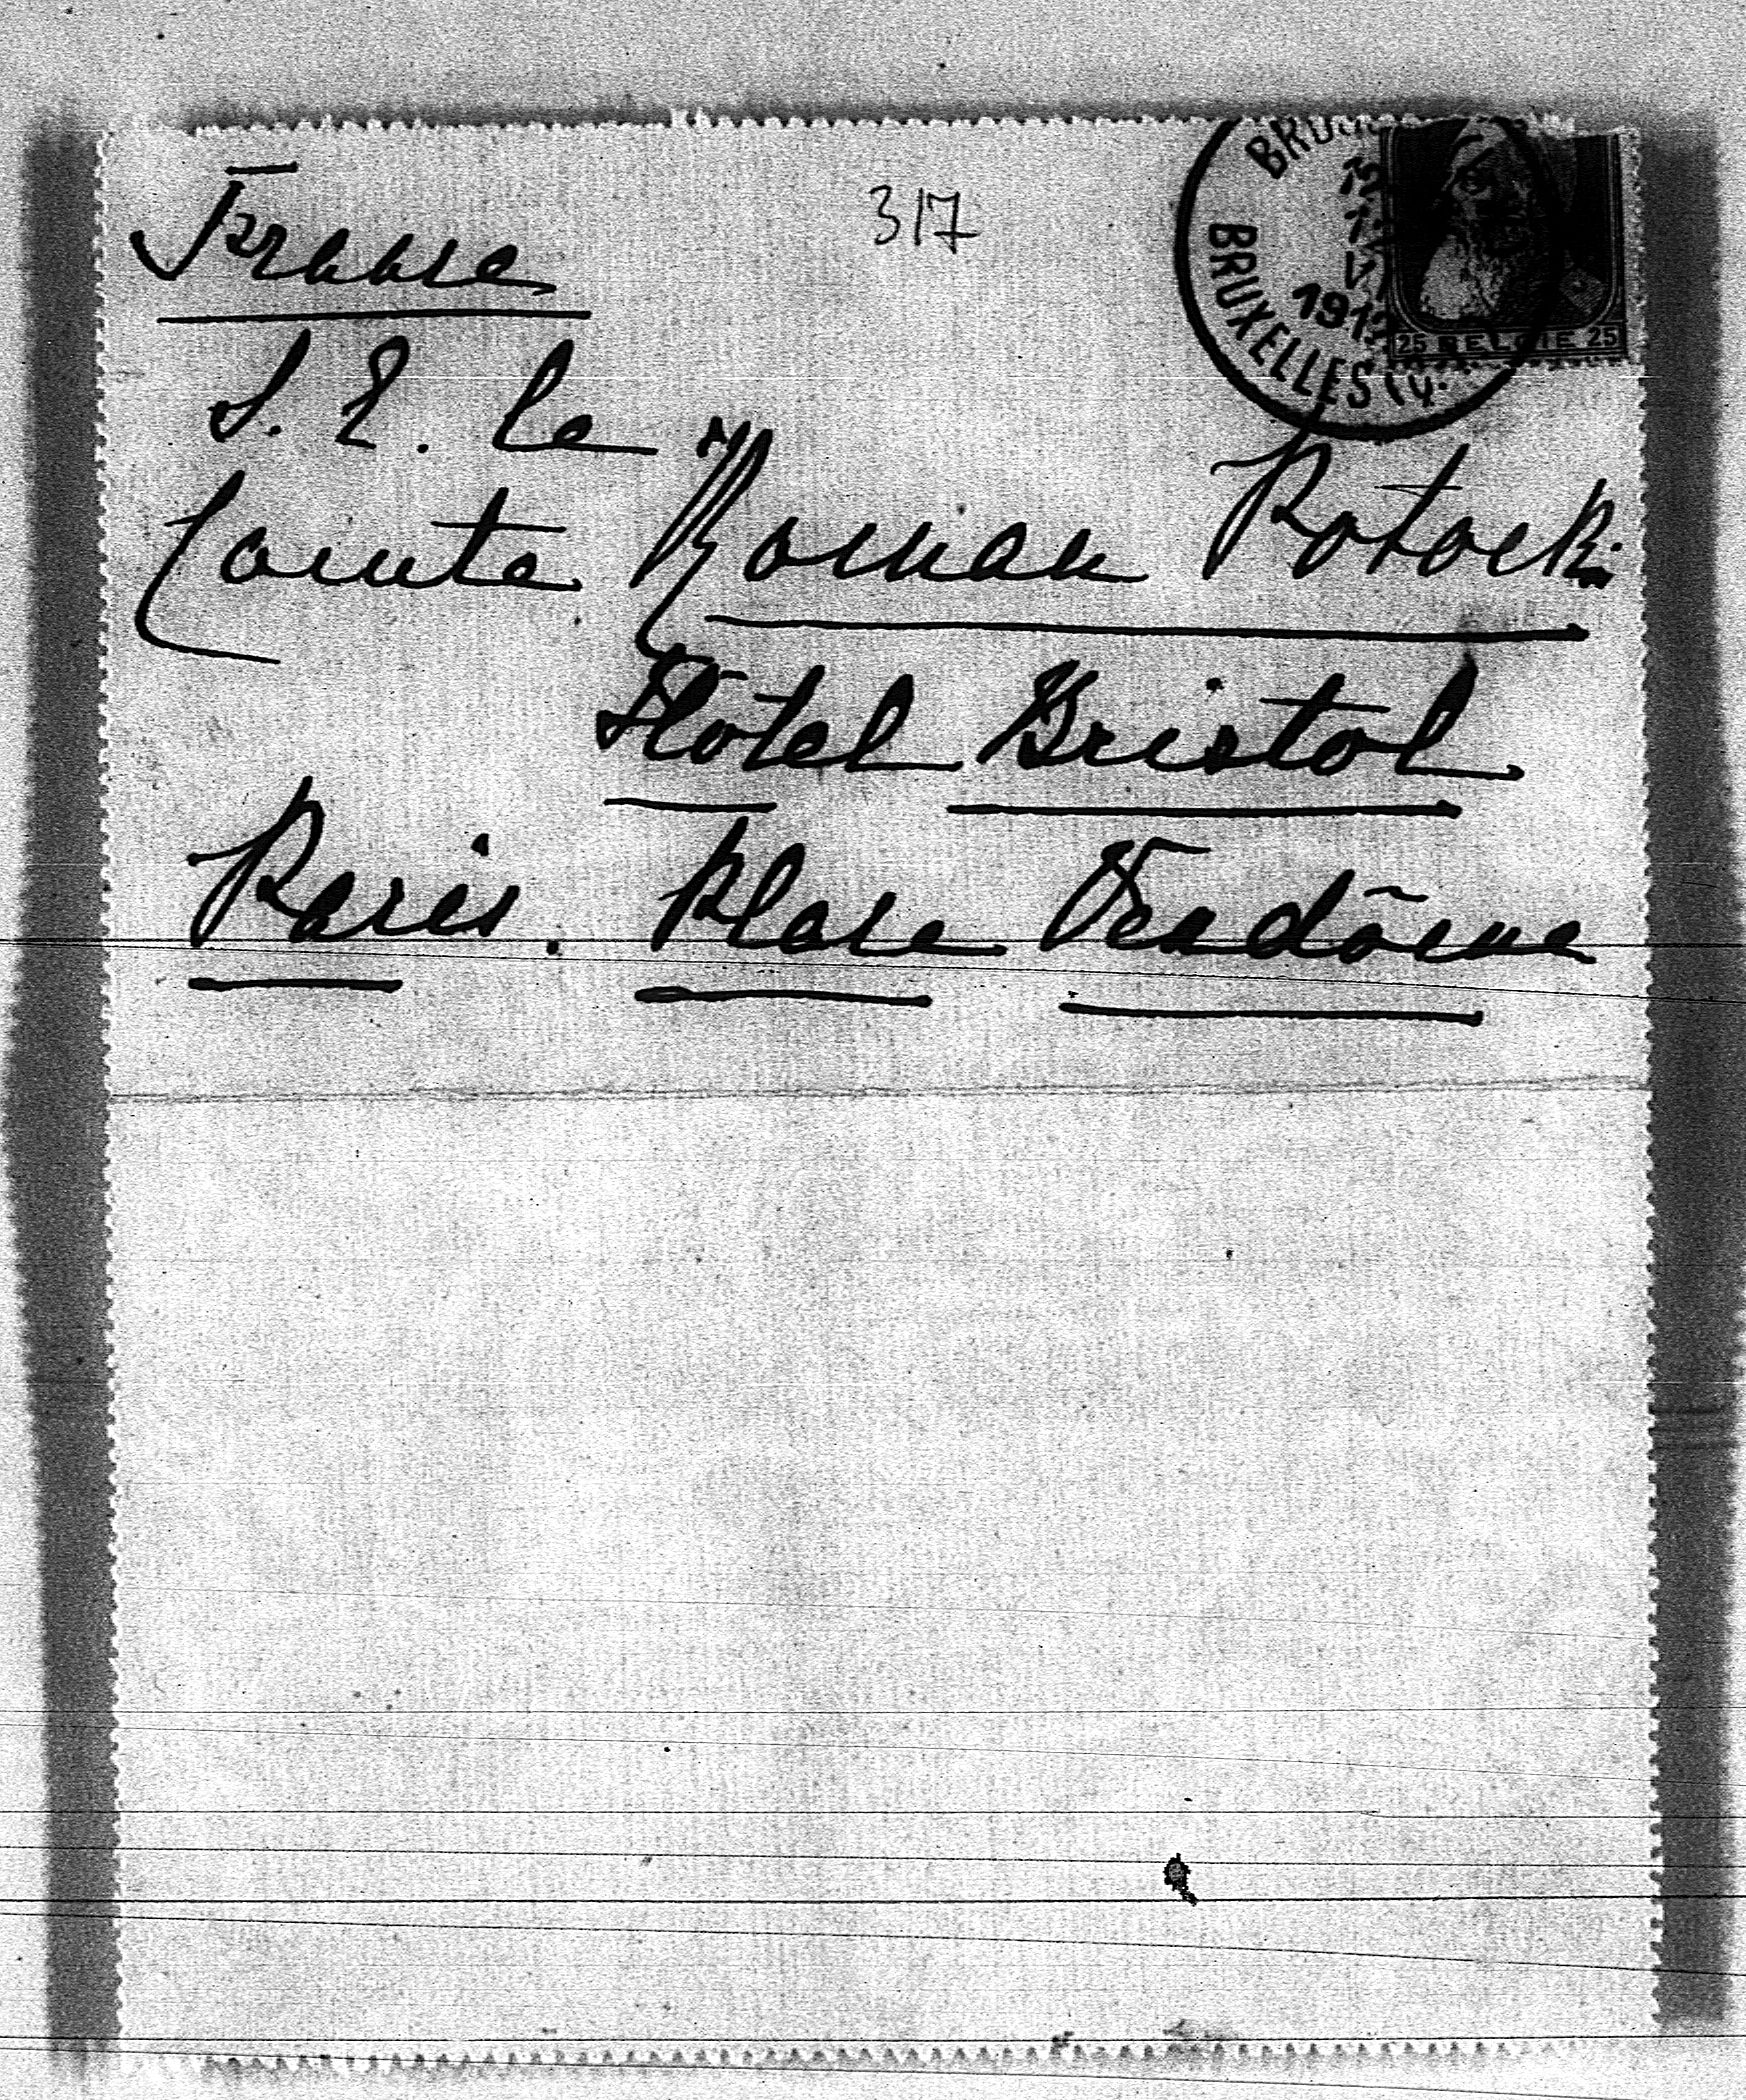 France
317
BRUXELLES
1912
25 BELGIE 25
S. E. le
Comte Roman Potocki
Hôtel Bristol
Paris. Place Vendôme